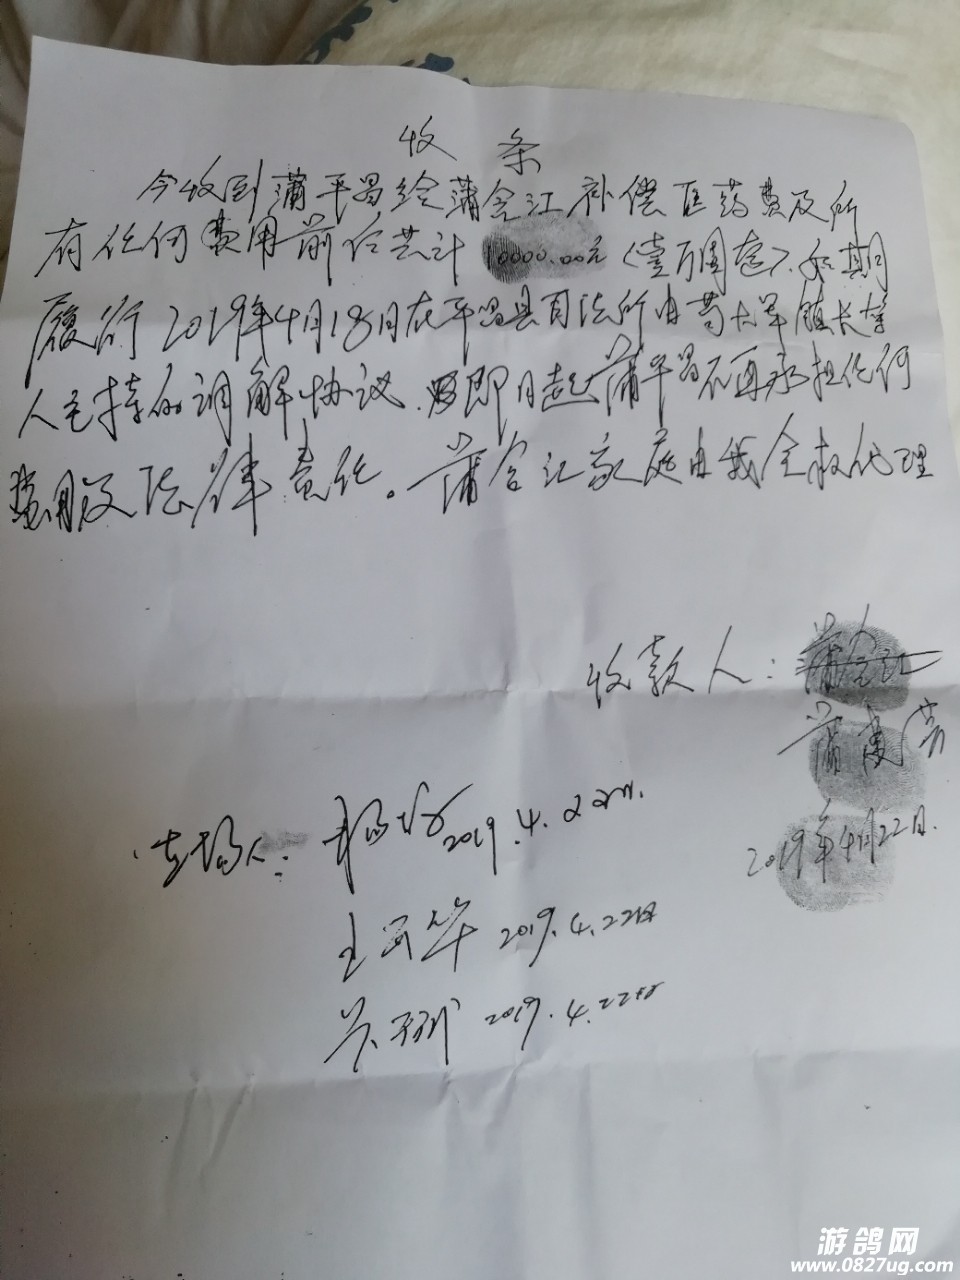 收条
今收到蒲平昌给蒲含江补偿医药费及所
有任何费用前后共计10000.00元(壹万圆整).如期
履行2019年4月18日在平昌县司法所由苟大军镇长等
人主持的调解协议.即日起蒲平昌不再承担任何
费用及法律责任。蒲含江家庭由我全权代理
收款人:蒲含江
蒲
2019年4月22日.
在场人: 2019.4.22日.
王 华 2019.4.22日
2019.4.22日
游鸽网
www.0827ug.com